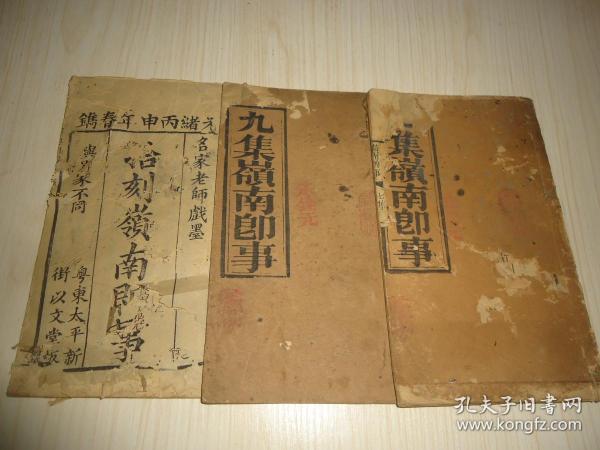 光緒丙申年春鐫
名家老師戲墨
刻嶺南即事
與別家不同
粵東太平新
街以文堂板
九集嶺南即事
集嶺南即事
孔夫子旧书网
www.kongfz.com